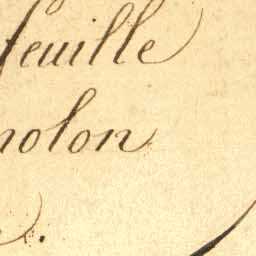 feuille
nolon
e.